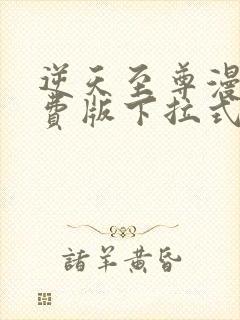 逆天至尊漫
费版下拉式
諸羊黄昏